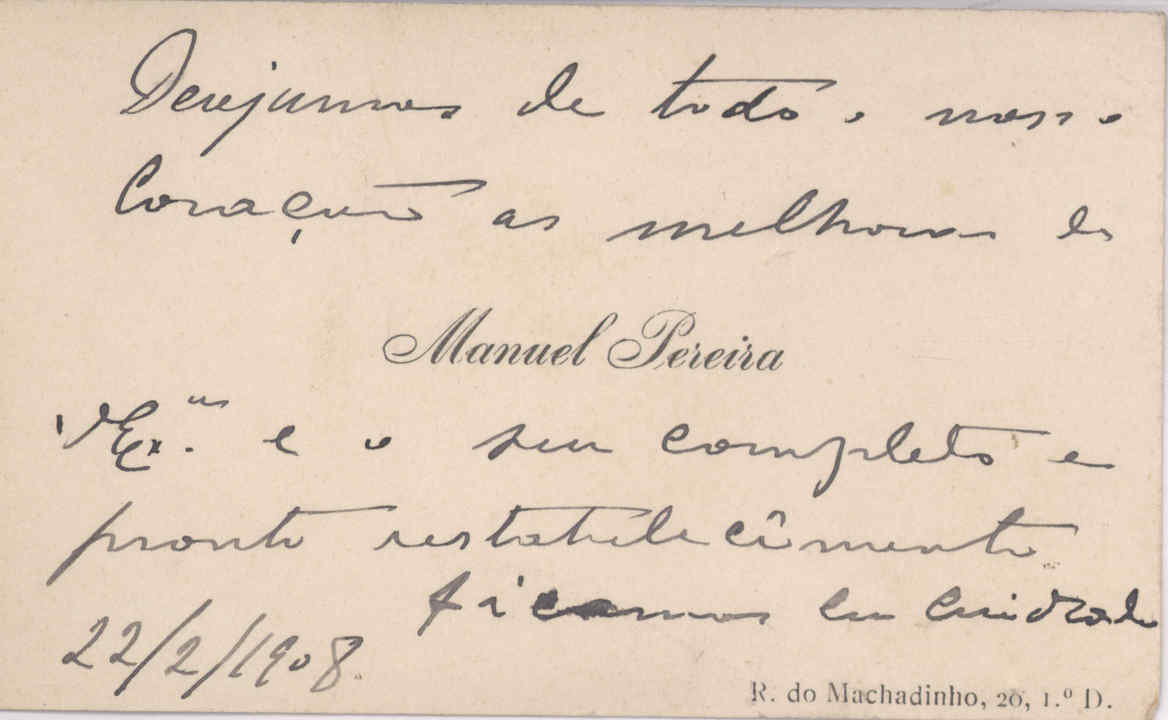 Desejamos de todo o nosso
Coração as melhoras de
Manuel Pereira
V Ex.ª e o seu completo e
pronto restabelecimento
ficamos em cuidado
22/2/1908.
R. do Machadinho, 20, 1.º D.